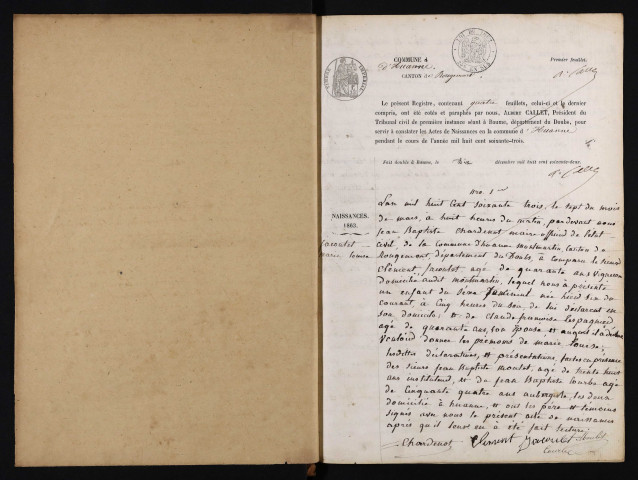 COMMUNE d
d'huanne.
CANTON de Rougemont.
Premier feuillet.
A. Callet
Le présent Registre, contenant quatre feuillets, celui-ci et le dernier
compris, ont été cotés et paraphés par nous, ALBERT CALLET, Président du
Tribunal civil de première instance séant à Baume, département du Doubs, pour
servir à constater les Actes de Naissances en la commune d'huanne
pendant le cours de l'année mil huit cent soixante-trois.
Fait double à Baume, le dix décembre mil huit cent soixante-deux.
A. Callet
NAISSANCES.
1863.
Jacoulet
marie louise
nro. 1er
L'an mil huit Cent soixante trois, le sept du mois
de mars, à huit heures du matin, pardevant nous
jean Baptiste Chardenot maire officier de l'état
civil, de la Commune d'huanne montmartin, Canton de
Rougemont, département du Doubs, à Comparu le sieur
Clément Jacoulet agé de quarante ans Vigneron
domicilié audit montmartin, lequel nous a présenté
un enfant du sexe féminin née hier six du
courant à Cinq heures du soir, de lui déclarant en
son domicile, et de Claude françoise
agé de quarante ans, son épouse et auquel il a déclaré
Vouloir donner les prénoms de marie louise;
lesdites déclarations, et présentations, faites en présence
des sieurs Jean Baptiste moulet, agé de trente huit
ans instituteur, et de Jean Baptiste Courbe agé
de Cinquante quatre ans aubergiste, les deux
domicilié à huanne, et ont les père et temoins
signés avec nous le présent acte de naissances
après qu'il leur en à été fait lecture.
Chardenot Clement Jacoulet moulet
Courbe